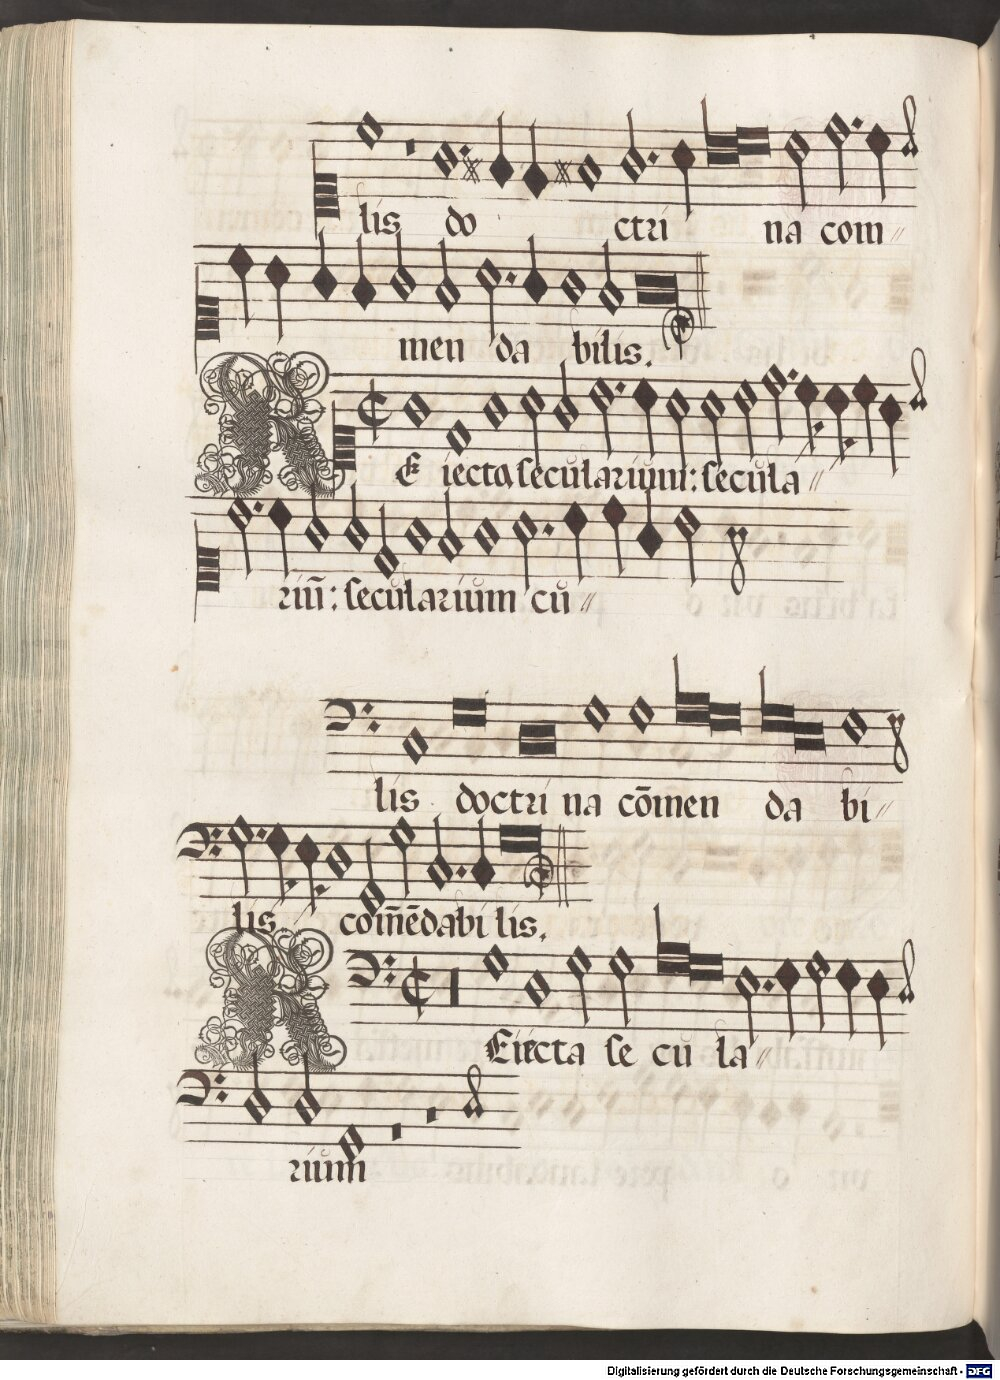 lis do ctri na com〃
men da bilis.
RE iecta secŭlariŭm: secŭla〃
riū̄: secŭlariŭm cŭ〃
lis doctri na cōmen da bi〃
lis com̄ēdabi lis.
REiecta se cŭ la〃
riŭm
Digitalisierung gefördert durch die Deutsche Forschungsgemeinschaft - DFG